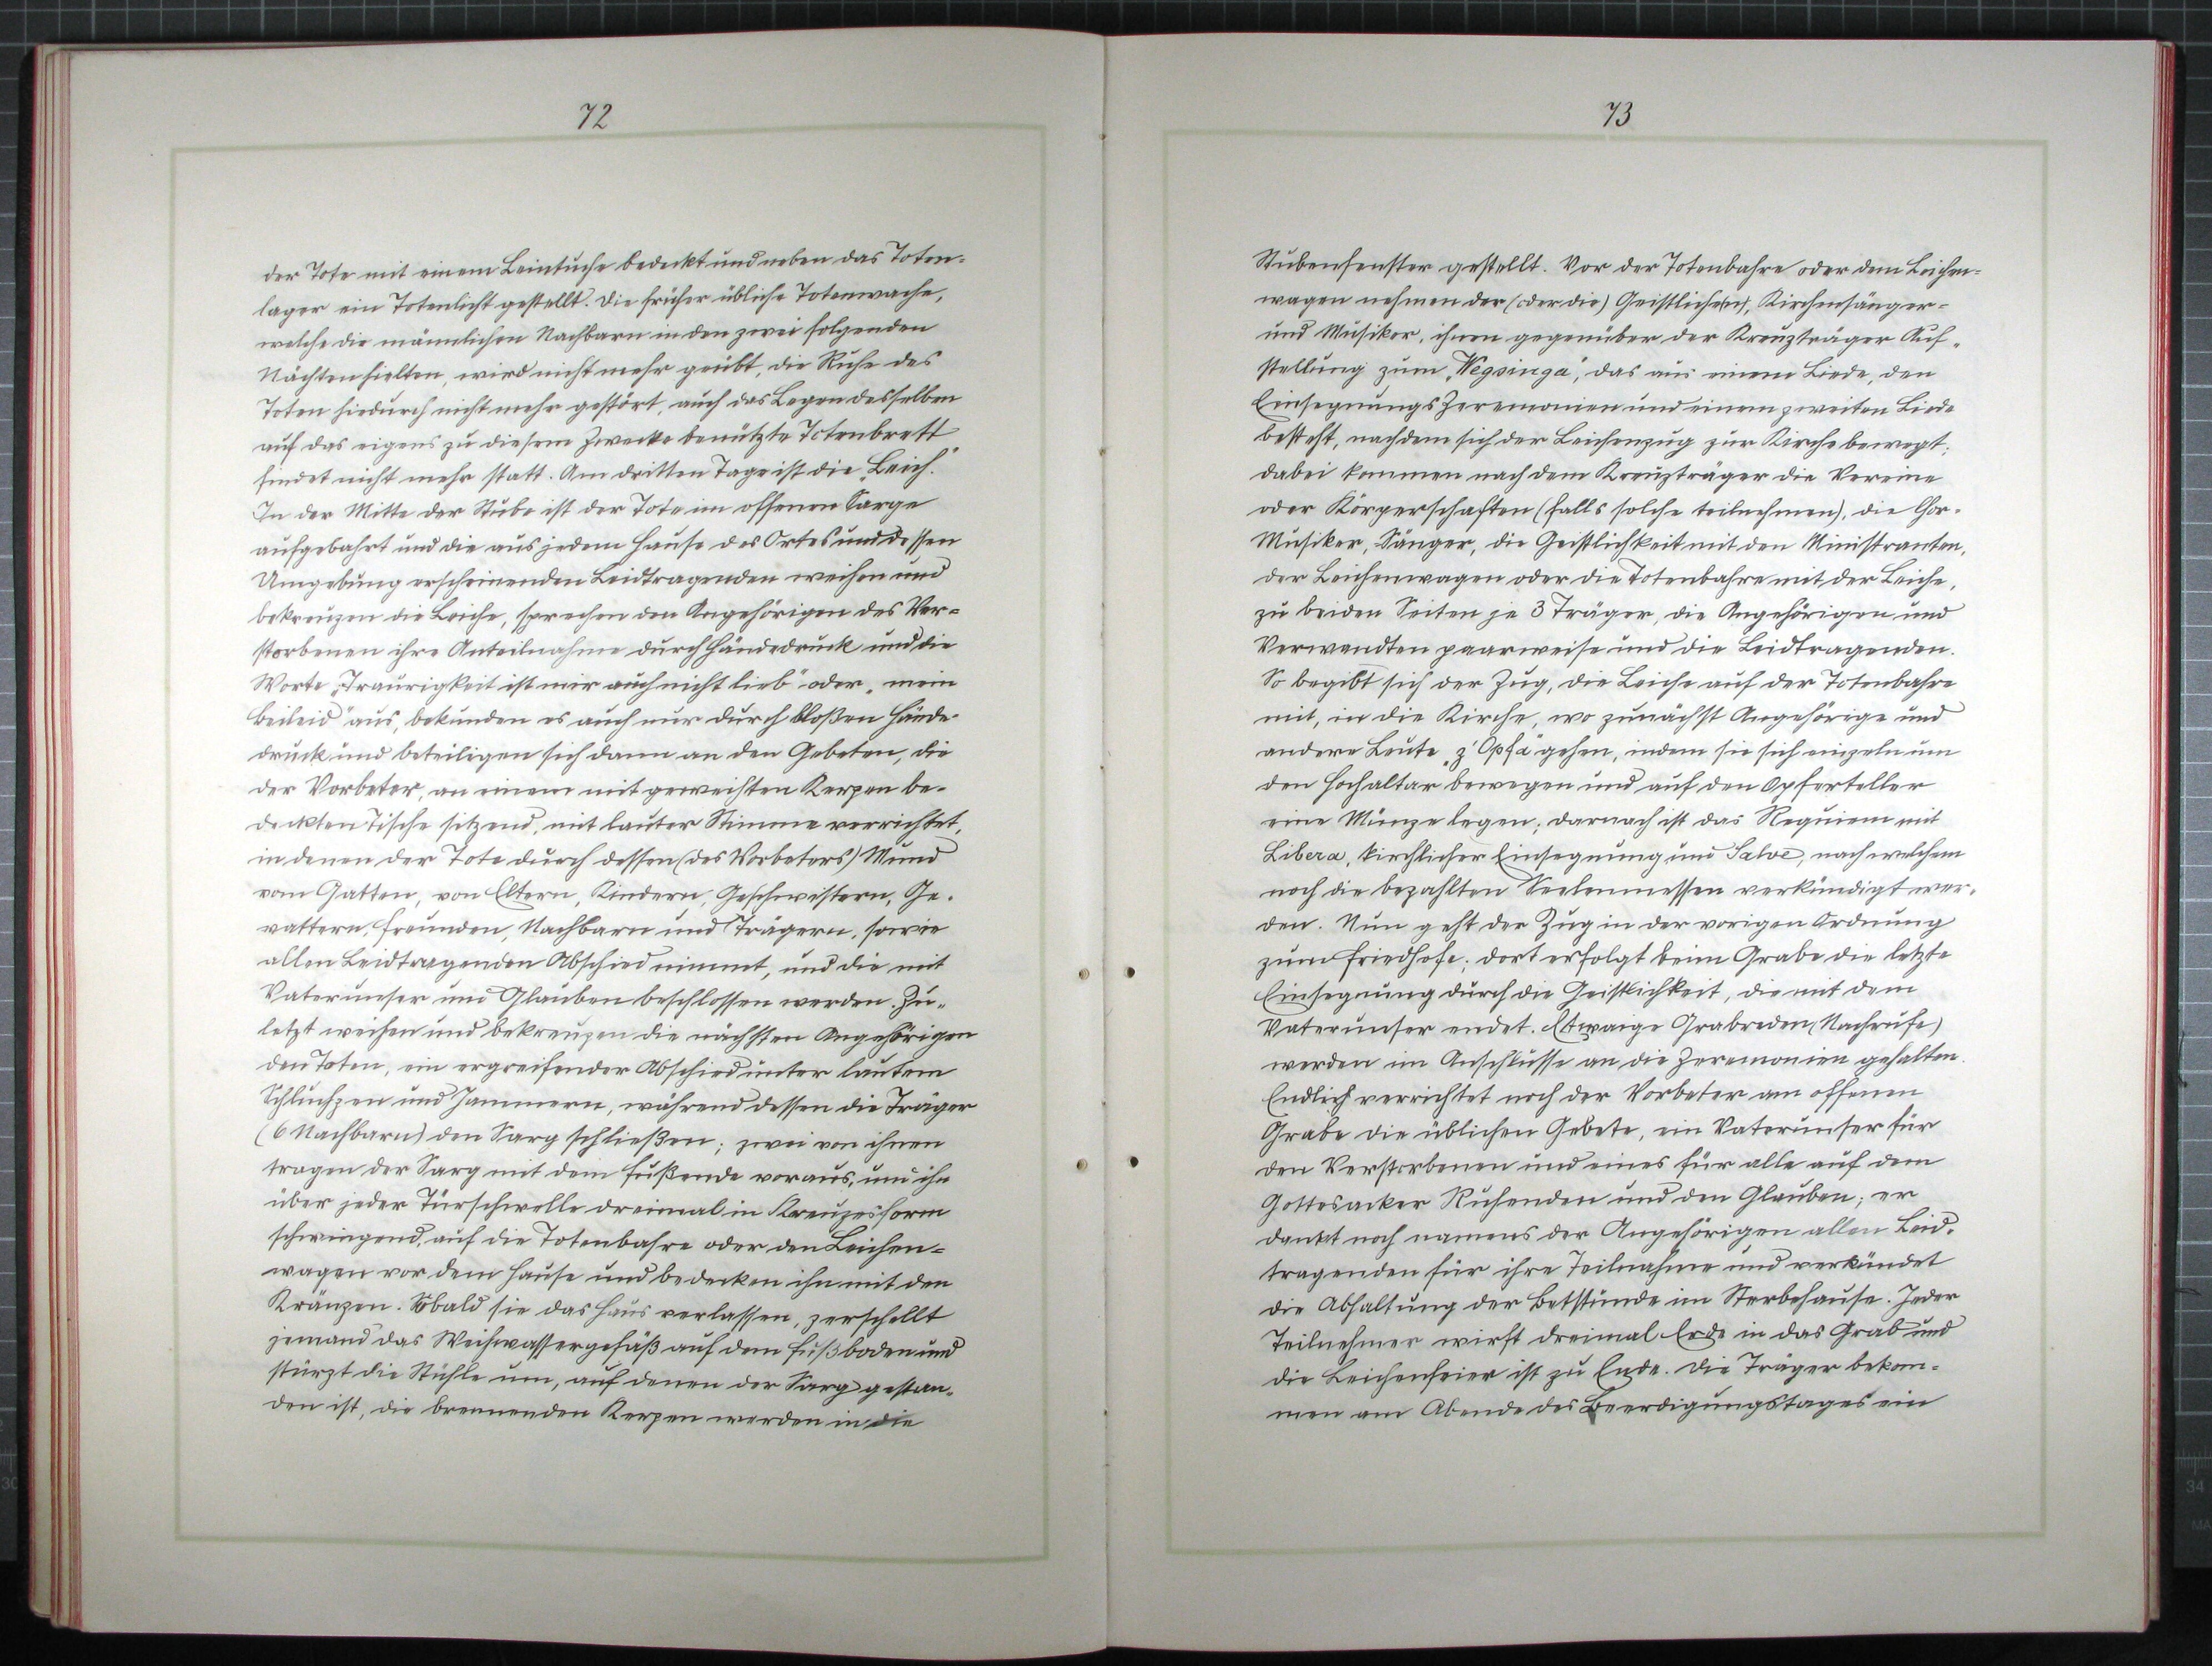 72
der Tote mit einem Leintuche bedeckt und neben das Toten-
lager ein Totenlicht gestellt. Die früher übliche Totenwache,
welche die männlichen Nachbarn in den zwei folgenden
Nächten hielten, wird nicht mehr geübt, die Ruhe des
Toten hiedurch nicht mehr gestört, auch das Legen desselben
auf das eigens zu diesem Zwecke benützte Totenbrett
findet nicht mehr statt. Am dritten Tage ist die „Leich."
In der Mitte der Stube ist der Tote im offenen Sarge
aufgebahrt und die aus jedem Hause des Ortes und dessen
Umgebung erscheinenden Leidtragenden weihen und
bekreuzen die Leiche, sprechen den Angehörigen des Ver-
storbenen ihre Anteilnahme durch Händedruck und die
Worte „Traurigkeit ist mir auch nicht lieb" oder „mein
Beileid" aus, bekunden es auch nur durch bloßen Hände-
druck und beteiligen sich dann an den Gebeten, die
der Vorbeter, an einem mit geweihten Kerzen be-
deckten Tische sitzend, mit lauter Stimme verrichtet,
in denen der Tote durch dessen (des Vorbeters) Mund
vom Gatten, von Eltern, Kindern, Geschwistern, Ge-
vattern, Freunden, Nachbarn und Trägern, sowie
allen Leidtragenden Abschied nimmt, und die mit
Vaterunser und Glauben beschlossen werden. Zu-
letzt weihen und bekreuzen die nächsten Angehörigen
den Toten, ein ergreifender Abschied unter lautem
Schluchzen und Jammern, während dessen die Träger
(6 Nachbarn) den Sarg schließen; zwei von ihnen
tragen der Sarg mit dem Fußende voraus, und ihn
über jeder Türschwelle dreimal in Kreuzesform
schwingend, auf die Totenbahre oder den Leichen-
wagen vor dem Hause und bedecken ihn mit den
Kränzen. Sobald sie das Haus verlassen, zerschellt
jemand das Weihwassergefäß auf dem Fußboden und
stürzt die Stühle um, auf denen der Sarg gestan-
den ist, die brennenden Kerzen werden in die
73
Stubenfenster gestellt. Vor der Totenbahre oder dem Leichen-
wagen nehmen der (oder die) Geistliche(n), Kirchensänger-
und Musiker, ihnen gegenüber der Kreuzträger Auf-
stellung zum „Wegsinga", das aus einem Liede, den
Einsegnungszeremonien und einem zweiten Liede
besteht, nachdem sich der Leichenzug zur Kirche bewegt;
dabei kommen nach dem Kreuzträger die Vereine
oder Körperschaften (falls solche teilnehmen), die Chor-
Musiker, Sänger, die Geistlichkeit mit den Ministranten,
der Leichenwagen oder die Totenbahre mit der Leiche,
zu beiden Seiten je 3 Träger, die Angehörigen und
Verwandten paarweise und die Leidtragenden.
So begibt sich der Zug, die Leiche auf der Totenbahre
mit, in die Kirche, wo zunächst Angehörige und
andere Leute „z'Opfa" gehen, indem sie sich einzeln um
den Hochaltar bewegen und auf den Opferteller
eine Münze legen; darnach ist das Requiem mit
Libera, kirchlicher Einsegnung und Salve, nach welchem
noch die bezahlten Seelenmessen verkündigt wer-
den. Nun geht der Zug in der vorigen Ordnung
zum Friedhofe; dort erfolgt beim Grabe die letzte
Einsegnung durch die Geistlichkeit, die mit dem
Vaterunser endet. Etwaige Grabreden (Nachrufe)
werden im Anschlusse an die Zeremonien gehalten.
Endlich verrichtet noch der Vorbeter am offenen
Grabe die üblichen Gebete, ein Vaterunser für
den Verstorbenen und eines für alle auf dem
Gottesacker Ruhenden und den Glauben; er
dankt noch namens der Angehörigen allen Leid-
tragenden für ihre Teilnahme und verkündet
die Abhaltung der Betstunde im Sterbehause. Jeder
Teilnehmer wirft dreimal Erde in das Grab und
die Leichenfeier ist zu Ende. Die Träger bekom-
men am Abende des Beerdigungstages ein